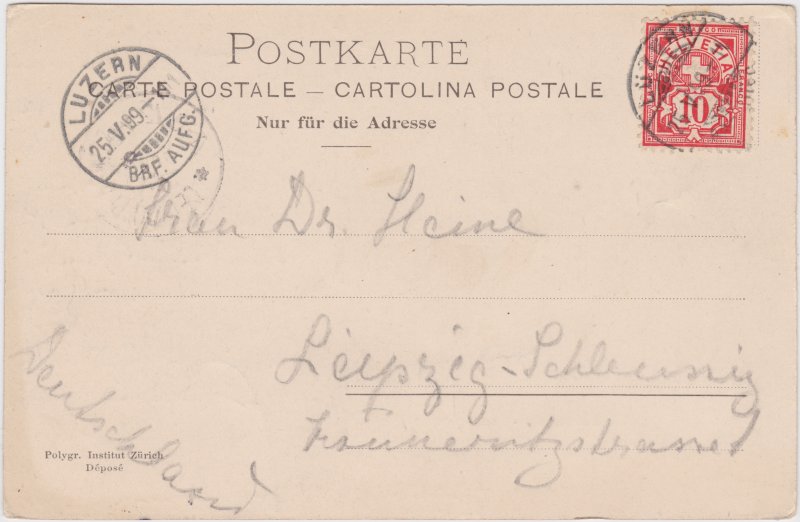 POSTKARTE
CARTE POSTALE — CARTOLINA POSTALE
Nur für die Adresse
LUZERN
25.V.99.
BRF. AUFG.
HELVETIA
10
Frau Dr. Heine
Leipzig-Schleussig
Deutschland
Polygr. Institut Zürich
Déposé